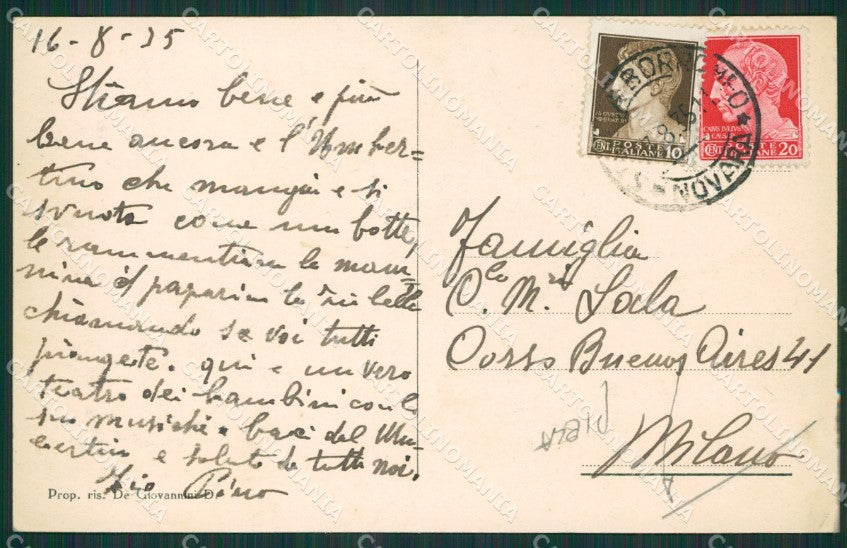 16-8-35
Stiamo bene e più
bene ancora e l'Umber-
tino che mangia e si
svuota come una botte,
le rammentiam la mam-
nina il paparino la più bella
chiamando se voi tutti
piangete. qui e un vero
teatro dei bambini con le
musiche baci dal Um
bertino e saluto da tutti noi.
Zio Pino
Prop. ris. De Giovannini D.
BORROMEO
NOVARA
POSTE
ITALIANE
CENT 10
POSTE
ITALIANE
CENT 20
Famiglia
C. M. Sala
Corso Buenos Aires 41
Milano
CARTOLINOMANIA